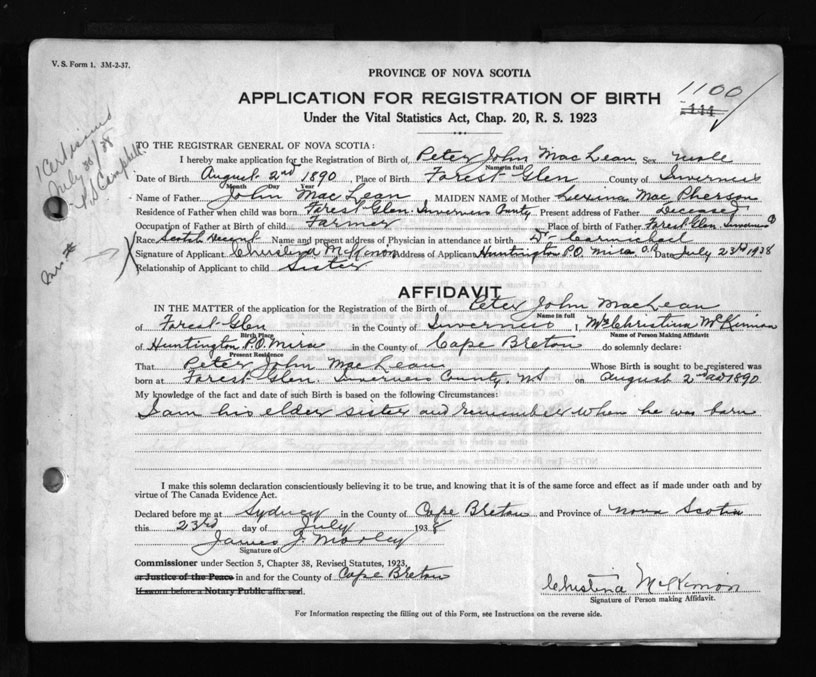 V. S. Form 1. 3M-2-37.
PROVINCE OF NOVA SCOTIA
1100
APPLICATION FOR REGISTRATION OF BIRTH
Under the Vital Statistics Act, Chap. 20, R. S. 1923
July 30/38
Campbell
TO THE REGISTRAR GENERAL OF NOVA SCOTIA:
I hereby make application for the Registration of Birth of Peter John MacLean Sex male
Name in full
Date of Birth August 2nd 1890, Place of Birth Forest Glen County of Inverness
Month Day Year
Name of Father John MacLean MAIDEN NAME of Mother MacPherson
Residence of Father when child was born Forest Glen Inverness County Present address of Father Deceased
Occupation of Father at Birth of child Farmer Place of birth of Father Forest Glen Inverness
Race Scotch Descent Name and present address of Physician in attendance at birth Dr Carmichael
Signature of Applicant McKinnon Address of Applicant Huntington P.O. Mira C.B. Date July 23rd 1938
Relationship of Applicant to child Sister
AFFIDAVIT
IN THE MATTER of the application for the Registration of the Birth of Peter John MacLean
Name in full
of Forest Glen in the County of Inverness, I, Mrs Christina McKinnon
Birth Place Name of Person Making Affidavit
of Huntington P.O. Mira in the County of Cape Breton do solemnly declare:
Present Residence
That Peter John MacLean Whose Birth is sought to be registered was
born at Forest Glen Inverness County, N.S on August 2nd 1890
My knowledge of the fact and date of such Birth is based on the following Circumstances:
I am his elder sister and remember when he was born
I make this solemn declaration conscientiously believing it to be true, and knowing that it is of the same force and effect as if made under oath and by
virtue of The Canada Evidence Act.
Declared before me at Sydney in the County of Cape Breton and Province of Nova Scotia
this 23rd day of July 1938
James J. Morley
Signature of
Commissioner under Section 5, Chapter 38, Revised Statutes, 1923,
or Justice of the Peace in and for the County of Cape Breton
If sworn before a Notary Public affix seal.
Christina McKinnon
Signature of Person making Affidavit.
For Information respecting the filling out of this Form, see Instructions on the reverse side.